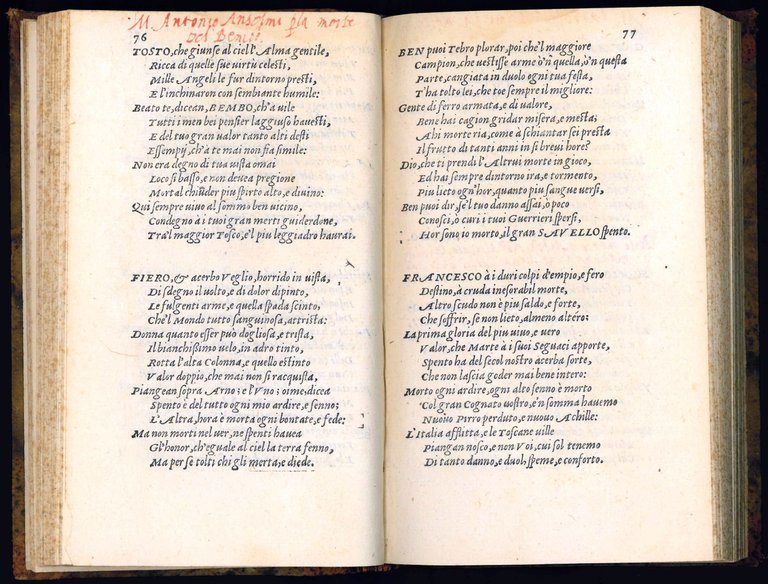 M. Antonio Anselmi p la morte
del Bembo.
76
TOSTO, che giunse al ciel l'Alma gentile,
Ricca di quelle sue virtù celesti,
Mille Angeli le fur dintorno presti,
E l'inchinaron con sembiante humile:
Beato te, dicean, BEMBO, ch'à vile
Tutti i men bei pensier laggiuso havesti,
E del tuo gran valor tanto alti desti
Essempij, ch'à te mai non fia simile:
Non era degno di tua vista omai
Loco sì basso, e non devea pregione
Mortal chiuder piu spirto alto, e divino:
Qui sempre vivo al sommo ben vicino,
Condegno à i tuoi gran merti guiderdone,
Tra'l maggior Tosco, e'l piu leggiadro haurai.
FIERO, & acerbo Veglio, horrido in vista,
Di sdegno il volto, e di dolor dipinto,
Le fulgenti arme, e quella spada scinto,
Che'l Mondo tutto sanguinosa, attrista:
Donna quanto esser può dogliosa, e trista,
Il bianchißimo velo, in adro tinto,
Rotta l'alta Colonna, e quello estinto
Valor doppio, che mai non si racquista,
Piangean sopra Arno; e l'Vno; oime, dicea
Spento è del tutto ogni mio ardire, e senno;
L'Altra, hora è morta ogni bontate, e fede:
Ma non morti nel ver, ne spenti havea
Gl'honor, ch'eguale al ciel la terra fenno,
Ma per se tolti chi gli merta, e diede.
77
BEN puoi Tebro plorar, poi che'l maggiore
Campion, che vestisse arme ò'n quella, ò'n questa
Parte, cangiata in duolo ogni tua festa,
T'ha tolto lei, che toe sempre il migliore:
Gente di ferro armata, e di valore,
Bene hai cagion gridar misera, e mesta;
Ahi morte ria, come à schiantar sei presta
Il frutto di tanti anni in sì brevi hore?
Dio, che ti prendi l'Altrui morte in gioco,
Ed hai sempre dintorno ira, e tormento,
Piu lieto ogn'hor, quanto piu sangue versi,
Ben puoi dir, se'l tuo danno assai, ò poco
Conosci, ò curi i tuoi Guerrieri spersi,
Hor sono io morto, il gran SAVELLO spento.
FRANCESCO à i duri colpi d'empio, e fero
Destino, à cruda inesorabil morte,
Altro scudo non è piu saldo, e forte,
Che soffrir, se non lieto, almeno altero:
La prima gloria del piu vivo, e vero
Valor, che Marte à i suoi Seguaci apporte,
Spento ha del secol nostro acerba sorte,
Che non lascia goder mai bene intero:
Morto ogni ardire, ogni alto senno è morto
Col gran Cognato vostro, e'n somma havemo
Nuovo Pirro perduto, e nuovo Achille:
L'Italia afflitta, e le Toscane ville
Piangan nosco, e non Voi, cui sol tenemo
Di tanto danno, e duol, speme, e conforto.